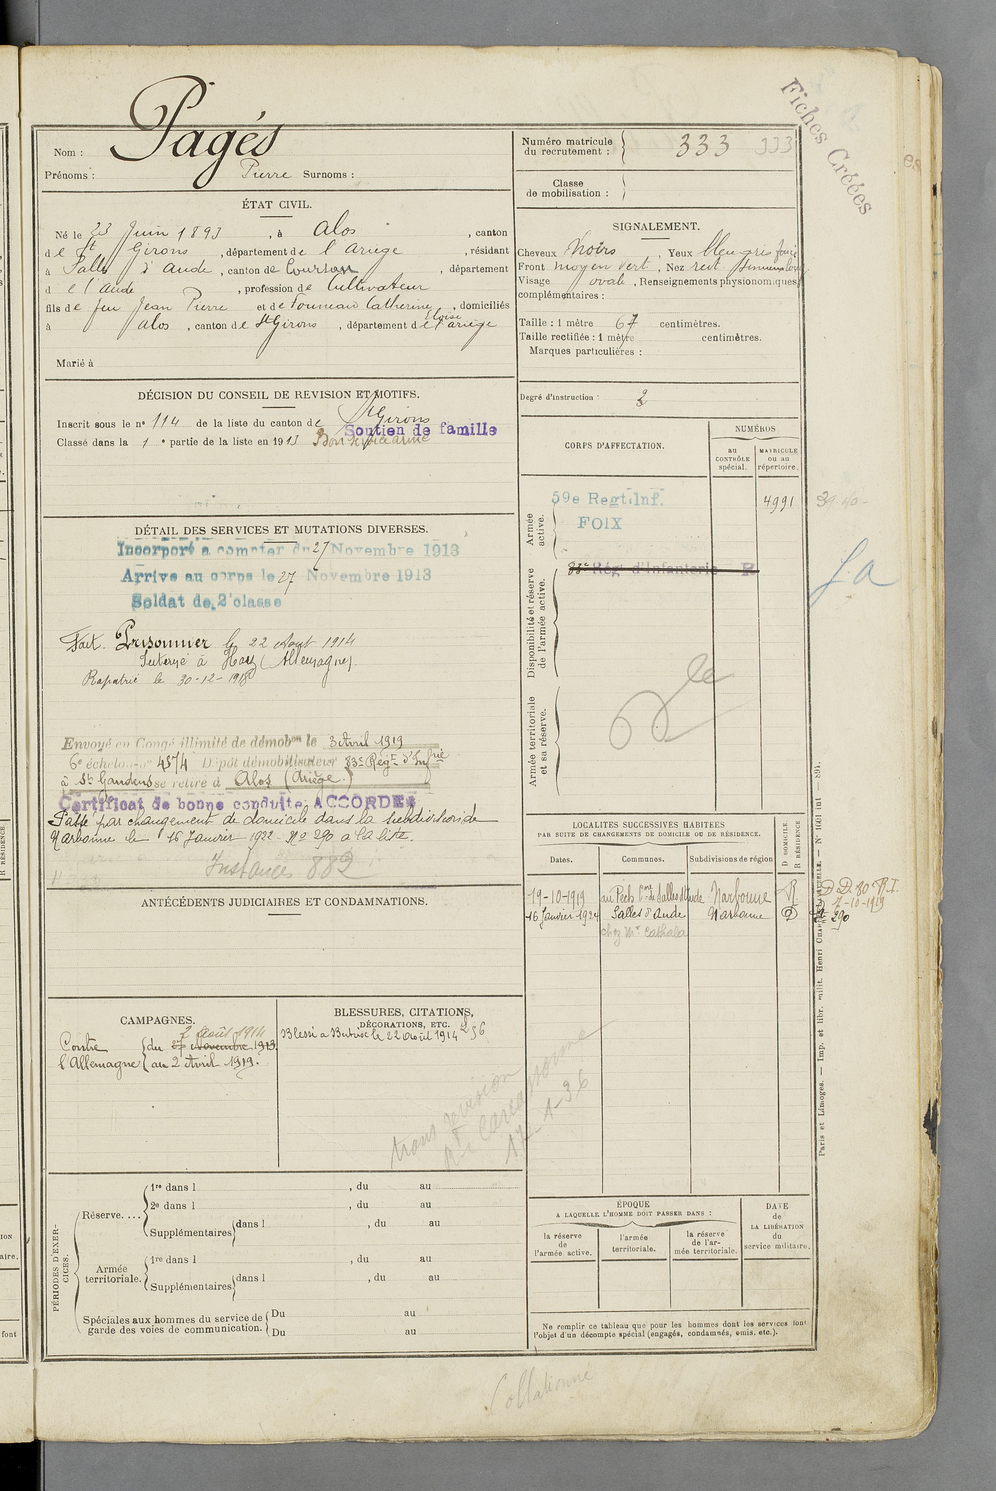 Fiches Créées
Nom : Pagés
Prénoms : Pierre Surnoms :
Numéro matricule du recrutement : 333 333
Classe de mobilisation :
ÉTAT CIVIL.
Né le 23 Juin 1893, à Alos, canton
de St Girons, département de l'Ariège, résidant
à Salles d'Aude, canton de Coursan, département
d e l'Aude, profession de Cultivateur
fils de feu Jean Pierre et de Catherine Eloïse, domiciliés
à Alos, canton de St Girons, département de l'Ariège
Marié à
SIGNALEMENT.
Cheveux Noirs Yeux bleu gris foncé
Front moyen vert, Nez rect.
Visage ovale, Renseignements physionomiques
complémentaires :
Taille : 1 mètre 67 centimètres.
Taille rectifiée : 1 mètre centimètres.
Marques particulières :
Degré d'instruction : 3
DÉCISION DU CONSEIL DE REVISION ET MOTIFS.
Inscrit sous le n° 114 de la liste du canton de St Girons
Classé dans la 1e partie de la liste en 1913 Bon service armé
Soutien de famille
DÉTAIL DES SERVICES ET MUTATIONS DIVERSES.
Incorporé à compter du 27 Novembre 1913
Arrivé au corps le 27 Novembre 1913
Soldat de 2e classe
Fait Prisonnier le 22 Août 1914
Interné à (Allemagne)
Rapatrié le 30-12-1918
Envoyé en Congé illimité de démobon le 3 Avril 1919
6e échelon n° 4574 Dépôt démobilisateur 83e Régt d'Infrie
à St Gaudens se retire à Alos (Ariège)
Certificat de bonne conduite: ACCORDÉ
Passé par changement de domicile dans la subdivision de
Narbonne le 16 Janvier 1922 - No 290 à la liste.
Instances 882
ANTÉCÉDENTS JUDICIAIRES ET CONDAMNATIONS.
CORPS D'AFFECTATION.
NUMÉROS
au CONTRÔLE spécial.
MATRICULE ou au répertoire.
Armée active.
59e Regt. Inf.
FOIX
4991
39-40-
Disponibilité et réserve de l'armée active.
Rég. d'Infanterie R
Armée territoriale et sa réserve.
LOCALITÉS SUCCESSIVES HABITÉES
PAR SUITE DE CHANGEMENTS DE DOMICILE OU DE RÉSIDENCE.
Dates. Communes. Subdivisions de région D DOMICILE. R RÉSIDENCE
19-10-1919 au Pech Cne de Salles d'Aude Narbonne R
16 Janvier 1924 Salles d'Aude Narbonne D
chez Mr Cathala
D D 80 R.I.
7-10-1919
290
CAMPAGNES.
2 Août 1914
Contre l'Allemagne du 27 Novembre 1913.
au 2 Avril 1919.
BLESSURES, CITATIONS,
DÉCORATIONS, ETC.
Blessé à le 22 Août 1914
trans revision
Rt Carcassonne
17-1-36
PÉRIODES D'EXERCICES.
Réserve.... 1re dans l , du au
2e dans l , du au
Supplémentaires dans l , du au
Armée territoriale. 1re dans l , du au
Supplémentaires dans l , du au
Spéciales aux hommes du service de garde des voies de communication. Du au
Du au
ÉPOQUE
A LAQUELLE L'HOMME DOIT PASSER DANS :
la réserve de l'armée active.
l'armée territoriale.
la réserve de l'armée territoriale.
DATE de LA LIBÉRATION du service militaire.
Ne remplir ce tableau que pour les hommes dont les services font
l'objet d'un décompte spécial (engagés, condamnés, omis, etc.).
Collationné